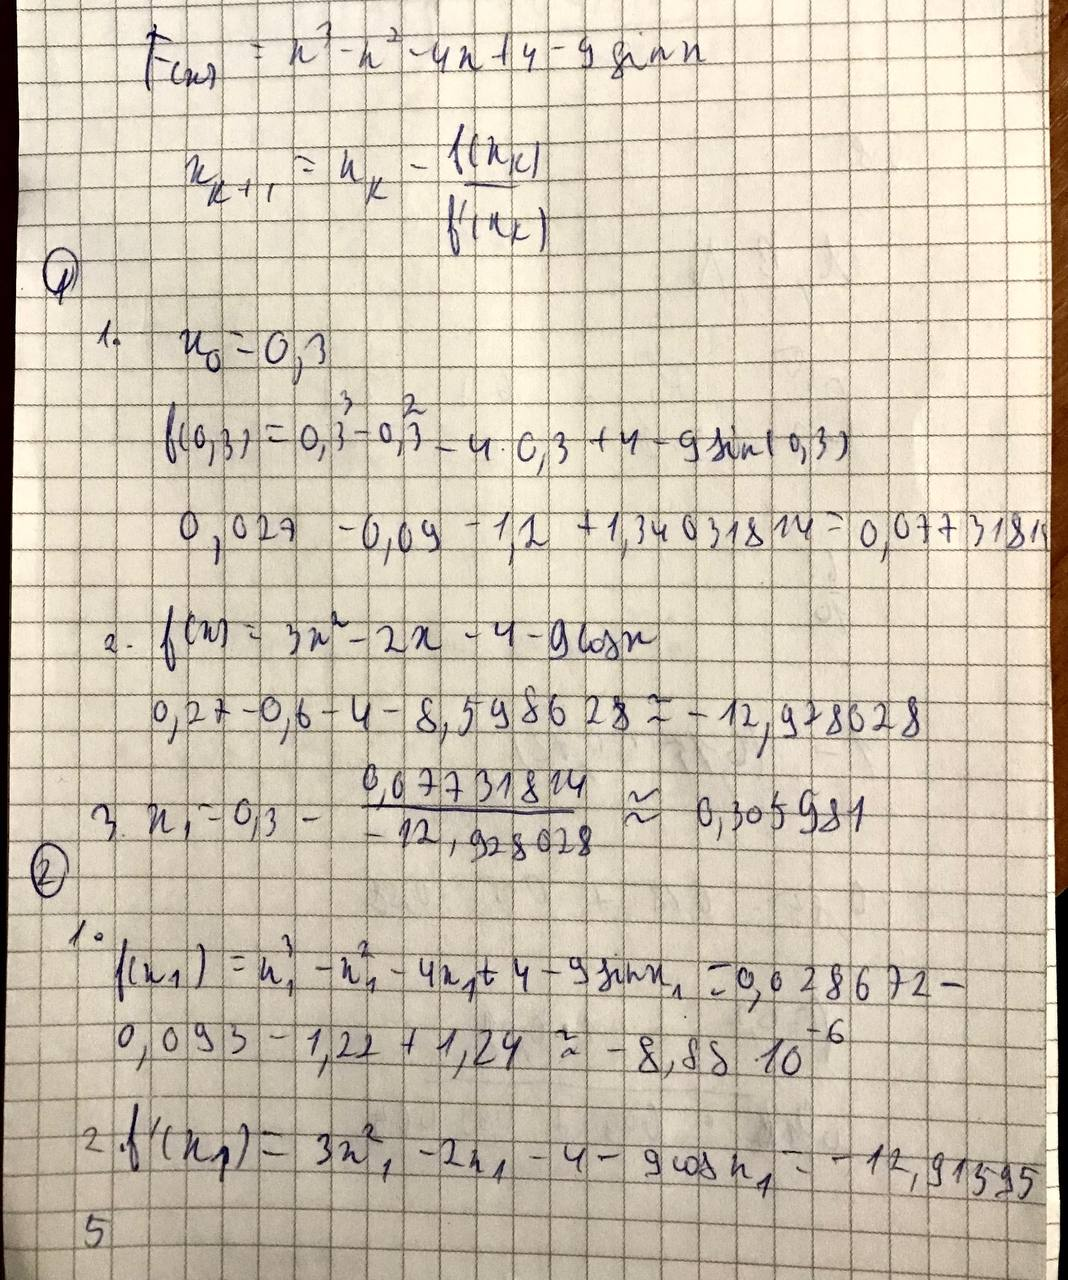 F(x) = x³ - x² - 4x + 4 - 9 sin x
x_{k+1} = x_k - f(x_k) / f'(x_k)
①
1. x₀ = 0,3
f(0,3) = 0,3³ - 0,3² - 4·0,3 + 4 - 9 sin(0,3)
0,027 - 0,09 - 1,2 + 1,34031814 = 0,0773181
2. f'(x) = 3x² - 2x - 4 - 9 cos x
0,27 - 0,6 - 4 - 8,598628 ≈ -12,978628
3. x₁ = 0,3 - 0,07731814 / -12,928028 ≈ 0,305981
②
1. f(x₁) = x₁³ - x₁² - 4x₁ + 4 - 9 sin x₁ = 0,028672 -
0,093 - 1,22 + 1,24 ≈ -8,88 10⁻⁶
2. f'(x₁) = 3x₁² - 2x₁ - 4 - 9 cos x₁ = -12,91595
5